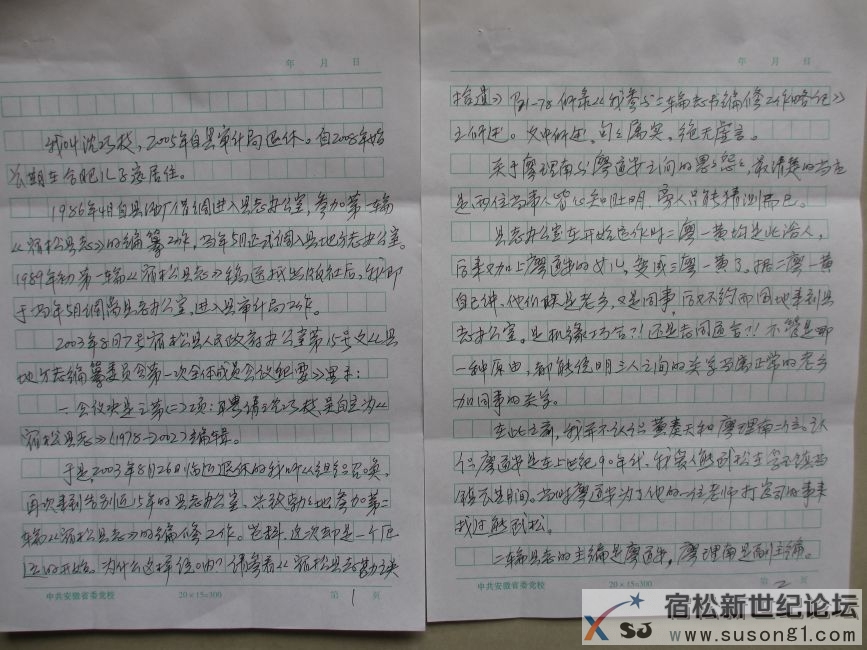 年 月 日
我叫沈巧枝，2005年自县审计局退休。自2008年始
长期在合肥儿子家居住。
1986年4月自县油厂借调进入县志办公室，参加第一轮
《宿松县志》的编纂工作，当年5月正式调入县地方志办公室。
1989年初第一轮《宿松县志》稿送找出版社后，我即
于当年5月调离县志办公室，进入县审计局工作。
2003年8月7号宿松县人民政府办公室第15号文《县
地方志编纂委员会第一次全体成员会议纪要》要求：
一、会议决定之第(二)项：再聘请沈巧枝、吴自为《
宿松县志》(1978-2002)编辑。
于是，2003年8月26日临近退休的我听从组织召唤，
再次来到告别近15年的县志办公室，兴致勃勃地参加第二
轮《宿松县志》的编修工作。岂料，这次却是一个厄
运的开始。为什么这样说呢？请参看《宿松县志勘误
中共安徽省委党校 20×15=300 第 1 页
年 月 日
拾遗》P21-78所录《我参与二轮志书编修工作略记》
之所述。文中所述，句句属实，绝无虚言。
关于廖理南与廖道安之间的恩恩怨怨，最清楚的当应
是两位当事人皆心知肚明，旁人只能猜测而已。
县志办公室在开始运作时二廖一黄均是北浴人，
后来又加上廖道安的女儿，变成三廖一黄了。据二廖一黄
自己讲，他们既是老乡，又是同事，后又不约而同地来到县
志办公室。是机缘巧合？！还是志同道合？！不管是哪
一种原由，都能说明三人之间的关系当属正常的老乡
加同事的关系。
在此之前，我并不认识黄奏天和廖理南二位。认
识廖道安是在上世纪90年代，我家人熊到松主学孚玉镇当
镇长期间。当时廖道安为了他的一位老师打官司的事来
找过熊到松。
二轮县志的主编是廖道安，廖理南是副主编。
中共安徽省委党校 20×15=300 第 2 页
宿松新世纪论坛
XSJ www.susong1.com